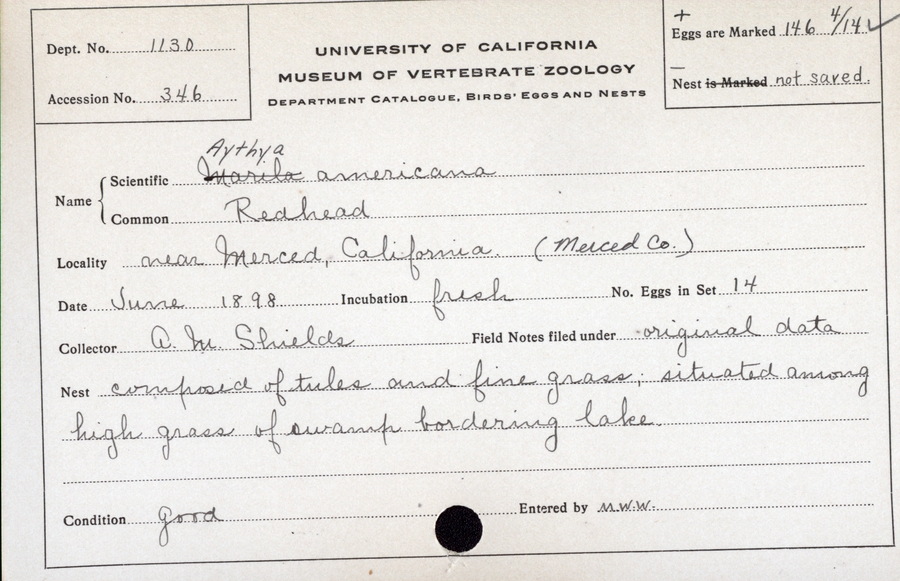 Dept. No. 1130
Accession No. 346
UNIVERSITY OF CALIFORNIA
MUSEUM OF VERTEBRATE ZOOLOGY
DEPARTMENT CATALOGUE, BIRDS' EGGS AND NESTS
+
Eggs are Marked 146 4/14 ✓
—
Nest is Marked not saved.
Aythya
Name { Scientific Marila americana
Common Redhead
Locality near Merced, California. (Merced Co.)
Date June 1898 Incubation fresh No. Eggs in Set 14
Collector A. M. Shields Field Notes filed under original data
Nest composed of tules and fine grass; situated among
high grass of swamp bordering lake.
Condition good Entered by M.W.W.